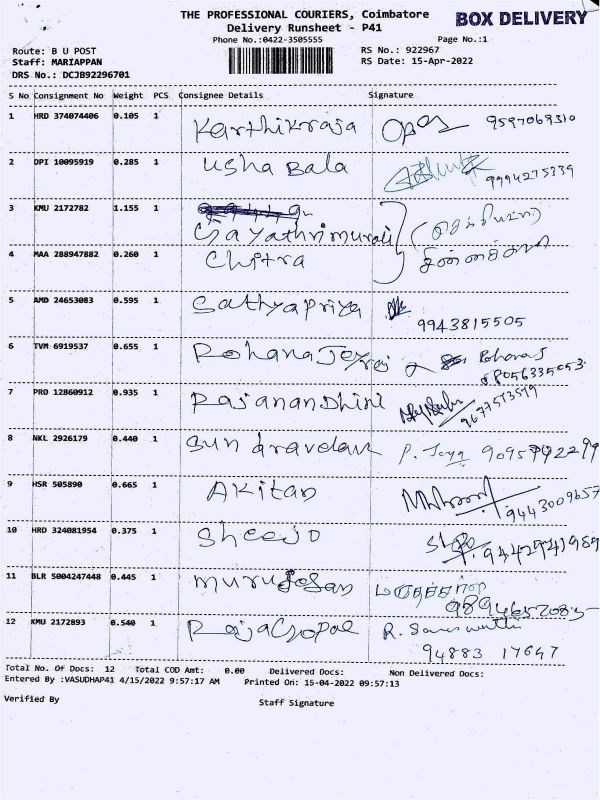 THE PROFESSIONAL COURIERS, Coimbatore
BOX DELIVERY
Delivery Runsheet - P41
Phone No.:0422-3505555
Page No.:1
Route: B U POST
RS No.: 922967
Staff: MARIAPPAN
RS Date: 15-Apr-2022
DRS No.: DCJB92296701
S No Consignment No Weight PCS Consignee Details Signature
1 HRD 374074406 0.105 1 Karthikraja 9597069310
2 DPI 10095919 0.285 1 Usha Bala 9994275339
3 KMU 2172782 1.155 1 Gayathrimurali
4 MAA 288947882 0.260 1 Chitra
5 AMD 24653083 0.595 1 Sathyapriya 9943815505
6 TVM 6919537 0.655 1 Rohana Jeyraj
8056335053
7 PRO 12860912 0.935 1 Rajanandhini 9677573579
8 NKL 2926179 0.440 1 Sundravelan P. Jeya
9 HSR 505890 0.665 1 Akitan 9443009657
10 HRD 324081954 0.375 1 Sheejo
11 BLR 5004247448 0.445 1 Murugesan
12 KMU 2172893 0.540 1 RajaGopal R. Saraswathi
94883 17647
Total No. Of Docs: 12 Total COD Amt: 0.00 Delivered Docs: Non Delivered Docs:
Entered By :VASUDHAP41 4/15/2022 9:57:17 AM Printed On: 15-04-2022 09:57:13
Verified By
Staff Signature